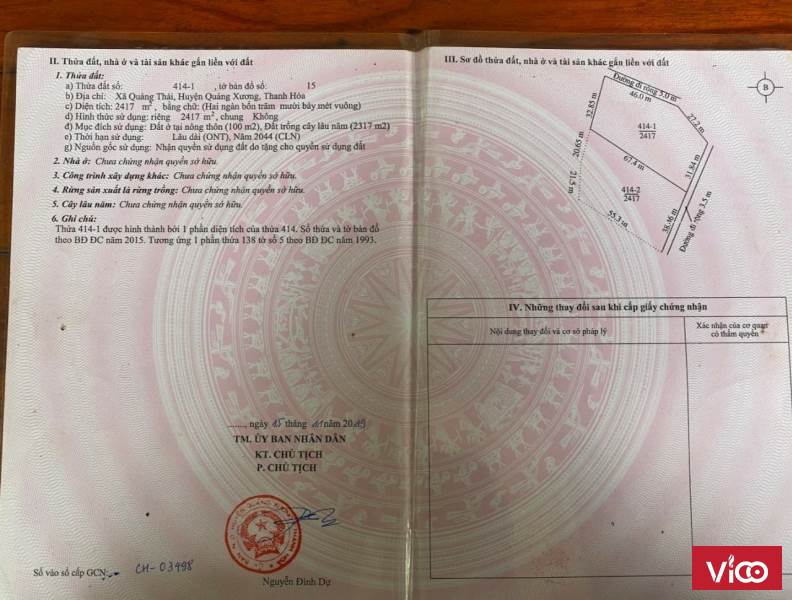 II. Thửa đất, nhà ở và tài sản khác gắn liền với đất
1. Thửa đất:
a) Thửa đất số: 414-1 , tờ bản đồ số: 15
b) Địa chỉ: Xã Quảng Thái, Huyện Quảng Xương, Thanh Hóa
c) Diện tích: 2417 m², bằng chữ: (Hai ngàn bốn trăm mười bảy mét vuông)
d) Hình thức sử dụng: riêng 2417 m², chung Không
đ) Mục đích sử dụng: Đất ở tại nông thôn (100 m2), Đất trồng cây lâu năm (2317 m2)
e) Thời hạn sử dụng: Lâu dài (ONT), Năm 2044 (CLN)
g) Nguồn gốc sử dụng: Nhận quyền sử dụng đất do tặng cho quyền sử dụng đất
2. Nhà ở: Chưa chứng nhận quyền sở hữu.
3. Công trình xây dựng khác: Chưa chứng nhận quyền sở hữu.
4. Rừng sản xuất là rừng trồng: Chưa chứng nhận quyền sở hữu.
5. Cây lâu năm: Chưa chứng nhận quyền sở hữu.
6. Ghi chú:
Thửa 414-1 được hình thành bởi 1 phần diện tích của thửa 414. Số thửa và tờ bản đồ
theo BĐ ĐC năm 2015. Tương ứng 1 phần thửa 138 tờ số 5 theo BĐ ĐC năm 1993.
......., ngày 15 tháng 11 năm 2019
TM. ỦY BAN NHÂN DÂN
KT. CHỦ TỊCH
P. CHỦ TỊCH
Nguyễn Đình Dự
Số vào sổ cấp GCN: CH-03498
III. Sơ đồ thửa đất, nhà ở và tài sản khác gắn liền với đất
Đường đi rộng 5.0 m
46.0 m
B
32.85 m
27.2 m
414-1
2417
20.65 m
67.4 m
31.84 m
21.5 m
414-2
2417
55.3 m
38.16 m
Đường đi rộng 3.5 m
IV. Những thay đổi sau khi cấp giấy chứng nhận
Nội dung thay đổi và cơ sở pháp lý
Xác nhận của cơ quan
có thẩm quyền
ViCO